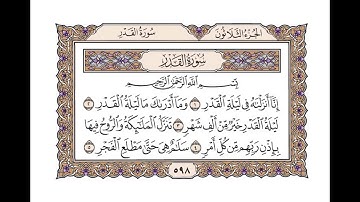 الجزء الثلاثون سورة القدر
سورة القدر
بسم الله الرحمن الرحيم
إِنَّا أَنزَلْنَاهُ فِي لَيْلَةِ الْقَدْرِ ١ وَمَا أَدْرَاكَ مَا لَيْلَةُ الْقَدْرِ ٢
لَيْلَةُ الْقَدْرِ خَيْرٌ مِّنْ أَلْفِ شَهْرٍ ٣ تَنَزَّلُ الْمَلَائِكَةُ وَالرُّوحُ فِيهَا
بِإِذْنِ رَبِّهِم مِّن كُلِّ أَمْرٍ ٤ سَلَامٌ هِيَ حَتَّىٰ مَطْلَعِ الْفَجْرِ ٥
٥٩٨